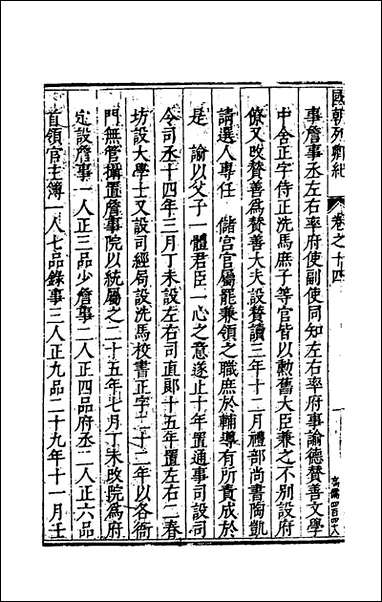 國朝列卿紀 卷之十四
事詹事丞左右率府使副使同知左右率府事諭德贊善文學
中舍正字侍正洗馬庶子等官皆以勲舊大臣兼之不別設府
僚又改贊善爲贊善大夫設贊讀三年十二月禮部尚書陶凱
請選人專任 儲宮官屬罷兼領之職庶於輔導有所責成於
是 諭以父子一體君臣一心之意遂止十年置通事司設司
令司丞十四年三月丁未設左右司直郎十五年置左右二春
坊設大學士又設司經局設洗馬校書正字二十二年以各衙
門無管攝置詹事院以統屬之二十五年七月丁未改院爲府
定設詹事一人正三品少詹事二人正四品府丞二人正六品
首領官主簿一人七品錄事三人正九品二十九年十一月壬